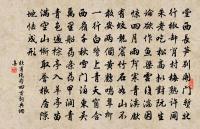 堂西長筍別開門塹北
行椒卻背村梅熟許同
朱老喫松高擬對阮生
論欲作魚梁雲覆湍因
驚四月雨聲寒青溪先
有蛟龍窟竹石如山不
敢安兩箇黃鸝鳴翠柳
一行白鷺上青天窗含
西嶺千秋雪門泊東吳
萬里船藥條藥甲潤青
青色過棕亭入草亭苗
滿空山慚取譽根居隙
地怯成形
杜甫絕句四首